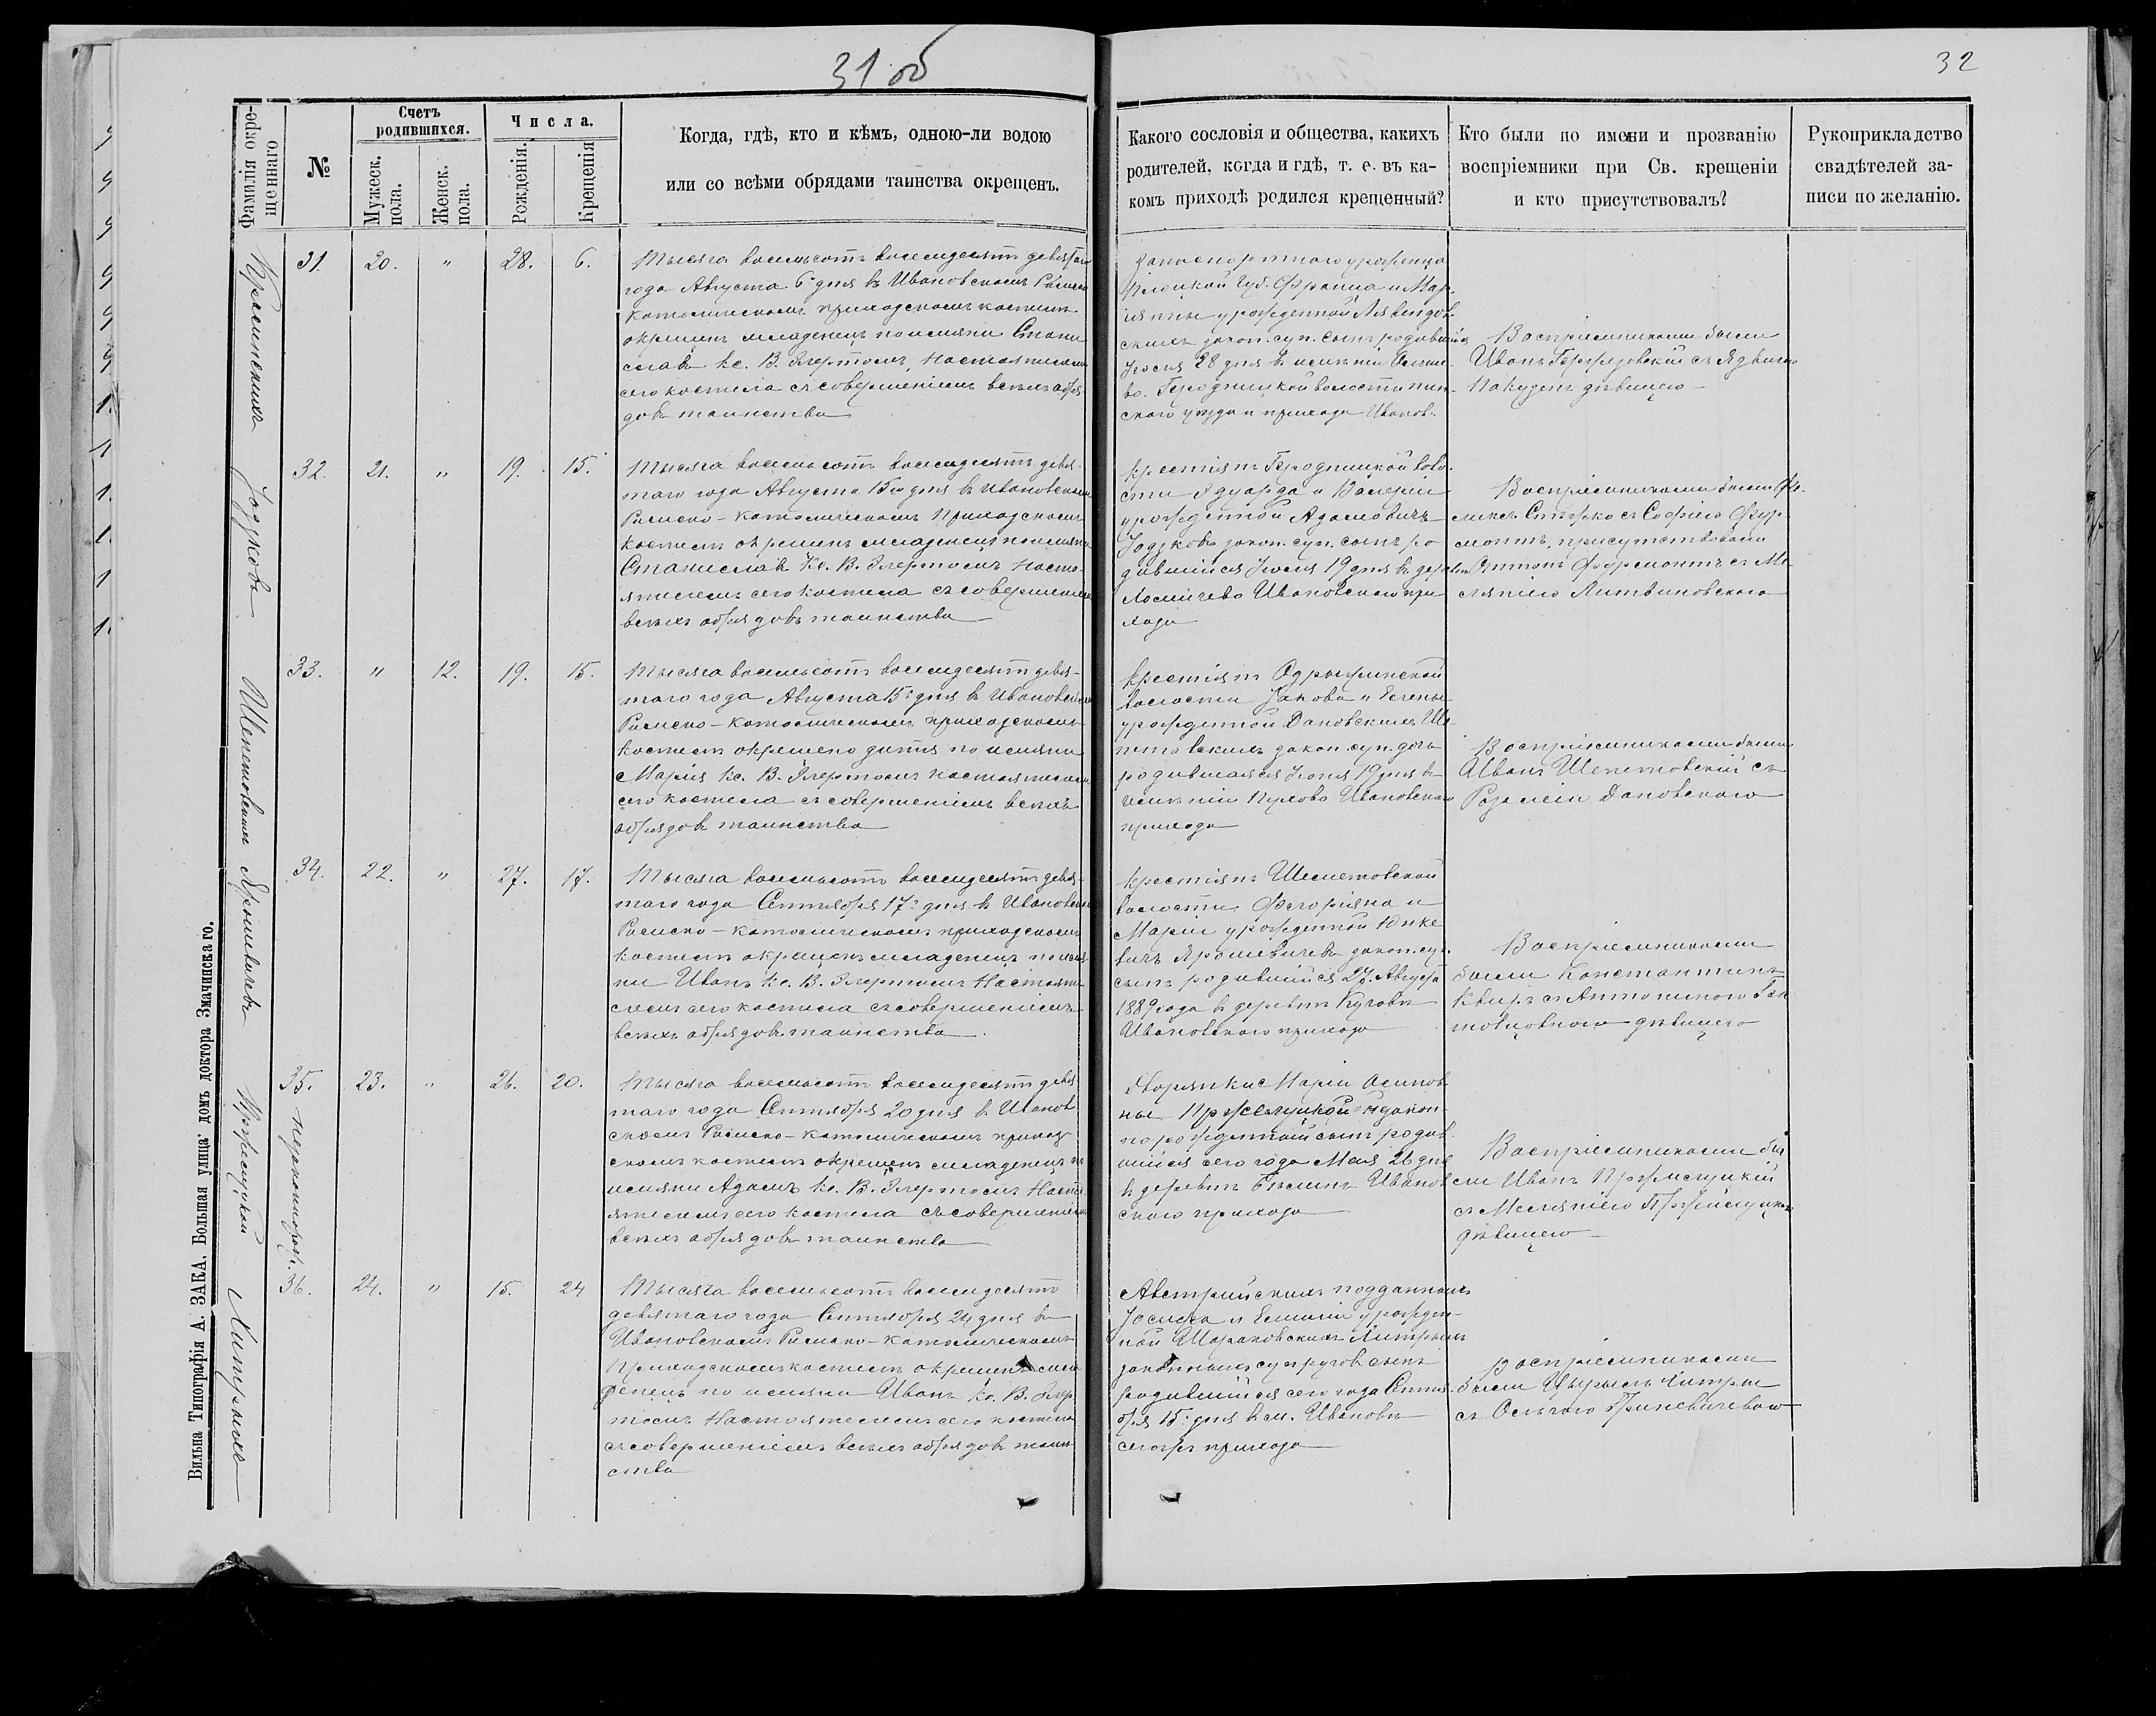 31 об
32
Фамилія окре-
щеннаго
№
Счетъ
родившихся.
Мужеск.
пола.
Женск.
пола.
Числа.
Рожденія.
Крещенія
Когда, гдѣ, кто и кѣмъ, одною-ли водою
или со всѣми обрядами таинства окрещенъ.
Какого сословія и общества, какихъ
родителей, когда и гдѣ, т. е. въ ка-
комъ приходѣ родился крещенный?
Кто были по имени и прозванію
воспріемники при Св. крещеніи
и кто присутствовалъ?
Рукоприкладство
свидѣтелей за-
писи по желанію.
31. 20. " 28. 6.
Тысяча восемьсотъ восемдесятъ девятаго
года Августа 6 дня въ Ивановскомъ Римско
католическомъ приходскомъ костелѣ
окрещенъ младенецъ по имяни Стани
славъ Кс. В. Элертомъ, Настоятелемъ
сего костела съ совершеніемъ всѣхъ обря
довъ таинства
урожденца
Плоцкой Губ. Франца и Мар.
іянны урожденной Левандов
скихъ закон. суп. сынъ родившійся
Іюля 28 дня въ имѣніи
во. Городицкой волости пин-
скаго уѣзда и прихода Иванов.
Воспріемниками были
Иванъ съ Ядвигою
дѣвицею
32. 21. " 19. 15.
Тысяча восемьсотъ восемдесятъ девя-
таго года Августа 15го дня въ Ивановскомъ
Римско-католическомъ Приходскомъ
костелѣ окрещенъ младенецъ по имяни
Станиславъ Кс. В. Элертомъ Насто-
ятелемъ сего костела съ совершеніемъ
всѣхъ обрядовъ таинства
Крестіянъ Городницкой воло
сти Эдуарда и Валеріи
урожденной Адамовичъ
Іодзковъ закон. суп. сынъ ро
дившійся Іюля 19 дня въ дерев
Ломичево Ивановскаго при
хода
Воспріемниками были Фе-
ликсъ съ Софіею Фур
монтъ, присутствовали
Антонъ Фурмонтъ съ Ме
ляніею Литвиновскою
33. " 12. 19. 15.
Тысяча восемьсотъ восемдесятъ девя-
таго года Августа 15 дня въ Ивановскомъ
Римско-католическомъ приходскомъ
костелѣ окрещено дитя по имяни
Марія Кс. В. Элертомъ настоятелемъ
сего костела съ совершеніемъ всѣхъ
обрядовъ таинства
Крестіянъ Одрыжинской
волости Якова и Елены
урожденной Дановскихъ Ше
петовскихъ закон. суп. дочь
родившаяся Іюля 19 дня въ
имѣніи Пулово Ивановскаго
прихода
Воспріемниками были
Иванъ Шепетовскій съ
Розаліею Дановскою
34. 22. " 27. 17.
Тысяча восемьсотъ восемдесятъ девя-
таго года Сентября 17 дня въ Ивановскомъ
Римско-католическомъ приходскомъ
костелѣ окрещенъ младенецъ по имя-
ни Иванъ Кс. В. Элертомъ Настояте
лемъ сего костела съ совершеніемъ
всѣхъ обрядовъ таинства.
Крестіянъ
волости Флоріяна и
Маріи урожденной Юшке
вичъ Ярошевичевъ закон. суп.
сынъ родившійся 27 Августа
1889 года въ деревнѣ
Ивановскаго прихода
Воспріемниками
были Константинъ
съ Антониною
дѣвицею
35. 23. " 26. 20.
Тысяча восемьсотъ восемдесятъ девя
таго года Сентября 20 дня въ Иванов
скомъ Римско-католическомъ приход
скомъ костелѣ окрещенъ младенецъ по
имяни Адамъ Кс. В. Элертомъ Насто
ятелемъ сего костела съ совершеніемъ
всѣхъ обрядовъ таинства
Дворянки Маріи Осипов
ны незакон-
порожденный сынъ родив
шійся сего года Мая 26 дня
въ деревнѣ Иванов
скаго прихода
Воспріемниками бы
ли Иванъ
съ Меляніею
дѣвицею
36. 24. " 15. 24
Тысяча восемьсотъ восемдесятъ
девятаго года Сентября 24 дня въ
Ивановскомъ Римско-католическомъ
Приходскомъ костелѣ окрещенъ мла
денецъ по имяни Иванъ Кс. В. Элер
томъ Настоятелемъ сего костела
съ совершеніемъ всѣхъ обрядовъ таин
ства
Австрійскихъ подданныхъ
Іосифа и Емиліи урожден-
ной
законныхъ супруговъ сынъ
родившійся сего года Сентя.
бря 15 дня въ м. Ивановѣ
сегожъ прихода
Воспріемниками
были
съ Ольгою Гриневичевою
Іодзковъ
Шепетовскихъ
Ярошевичевъ
Вильна Типографія А. ЗАКА. Большая улица домъ доктора Змачинскаго.